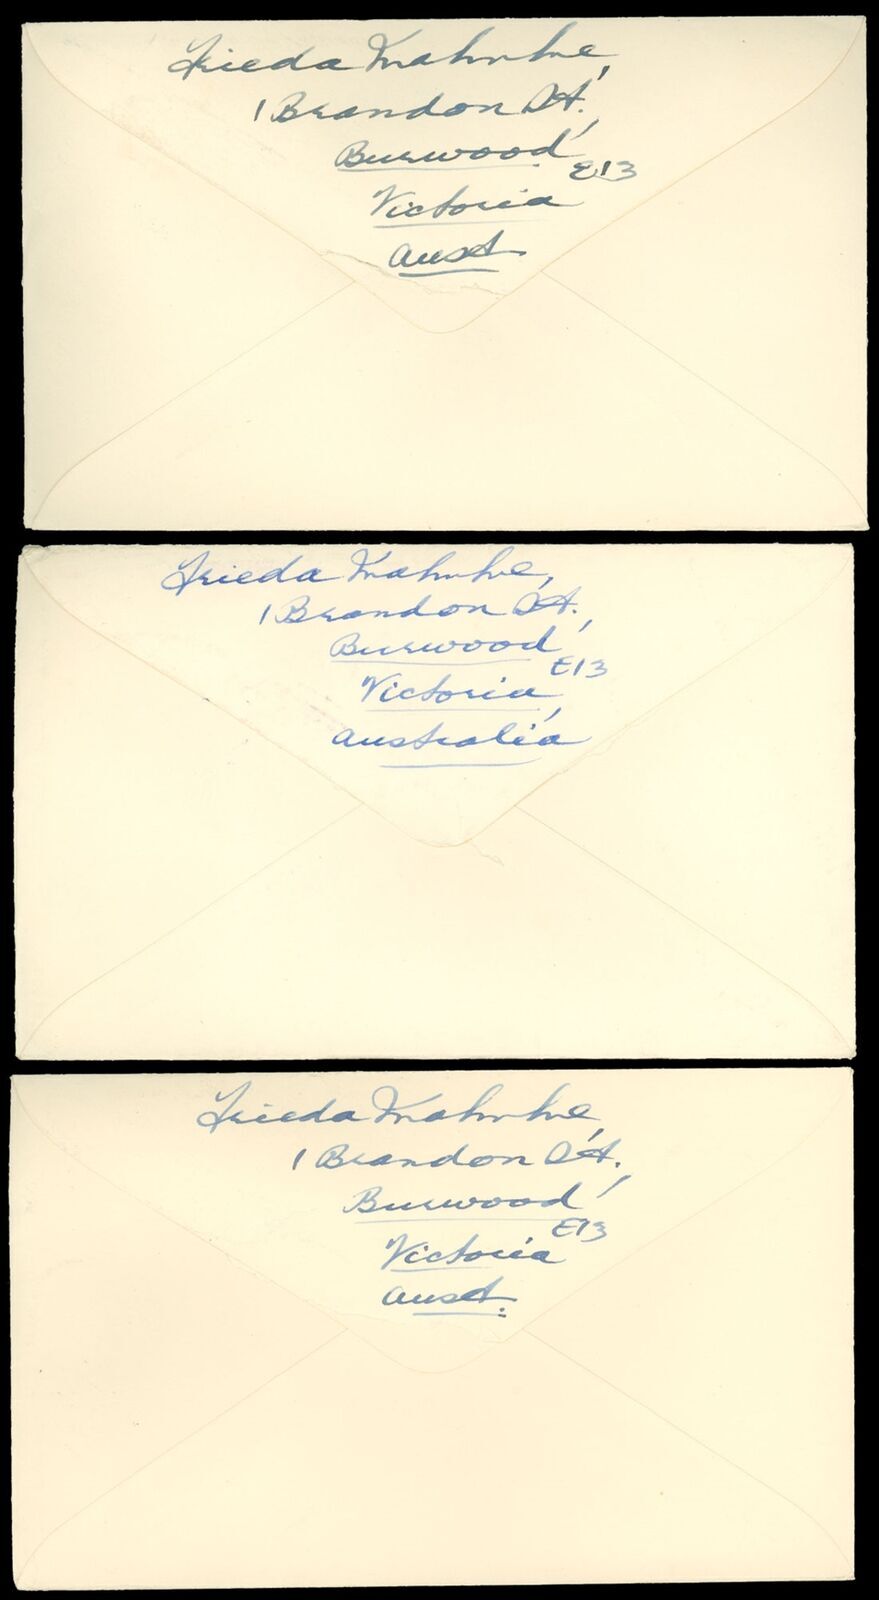 Frieda Mahnke,
1 Brandon St.,
Burwood,
E13
Victoria
Aust
Frieda Mahnke,
1 Brandon St.,
Burwood,
E13
Victoria,
Australia
Frieda Mahnke,
1 Brandon St.,
Burwood,
E13
Victoria
Aust.